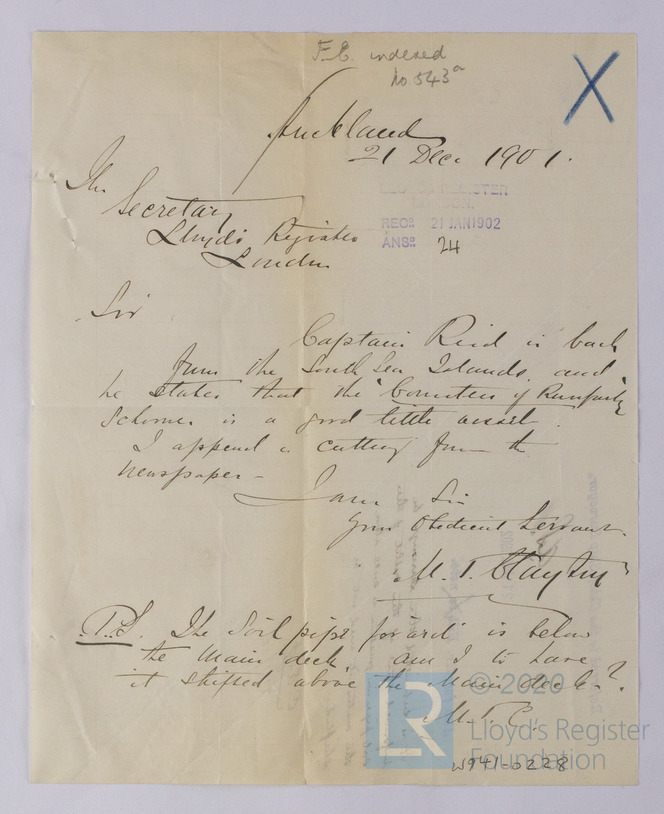 F.E. indexed
No 543a
Auckland
21 Dec. 1901.
The
Secretary
Lloyds Register
London
LLOYD'S REGISTER
LONDON.
RECD. 21 JAN 1902
ANSD. 24
Sir
Captain Reid is back
from the South Sea Islands and
he states that the "Countess of Ranfurly"
Schooner is a good little vessel.
I append a cutting from the
newspaper -
I am Sir
Your Obedient Servant.
M. T. Clayton
P.S. The Soil pipe for'ard is below
the main deck, am I to have
it shifted above the Main deck?
M.T.C.
W941-0228
LR
© 2020
Lloyd's Register
Foundation